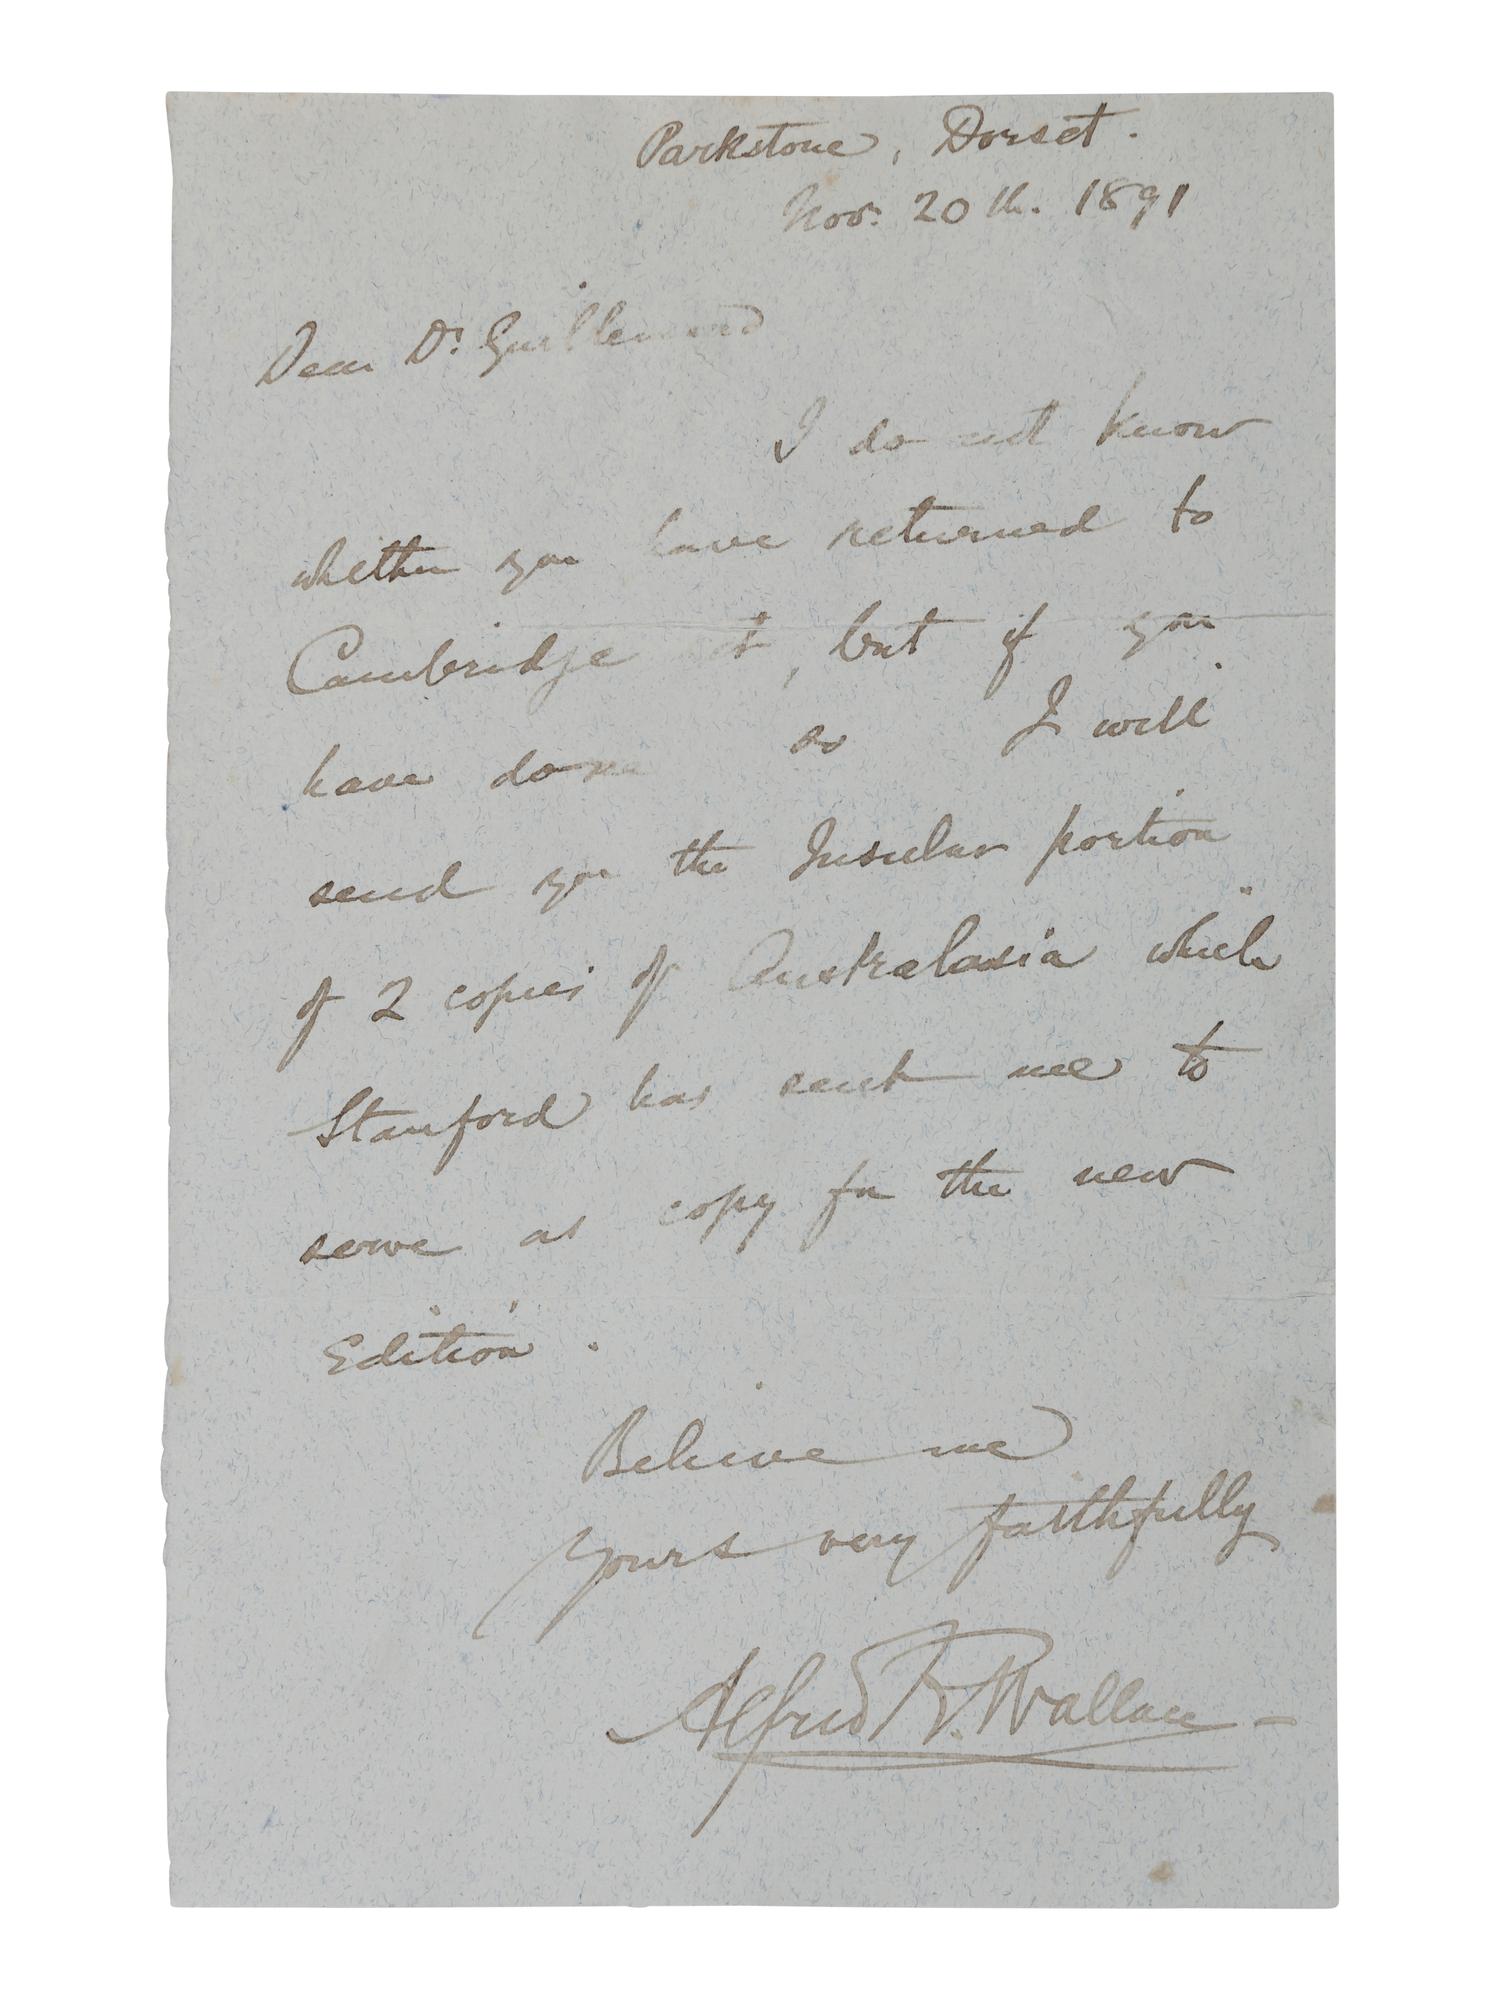 Parkstone, Dorset.
Nov. 20th. 1891
Dear Dr. Guillemard
I do not know
whether you have returned to
Cambridge yet, but if you
have done so I will
send you the Insular portion
of 2 copies of Australasia which
Stanford has sent me to
serve as copy for the new
Edition.
Believe me
Yours very faithfully
Alfred R. Wallace